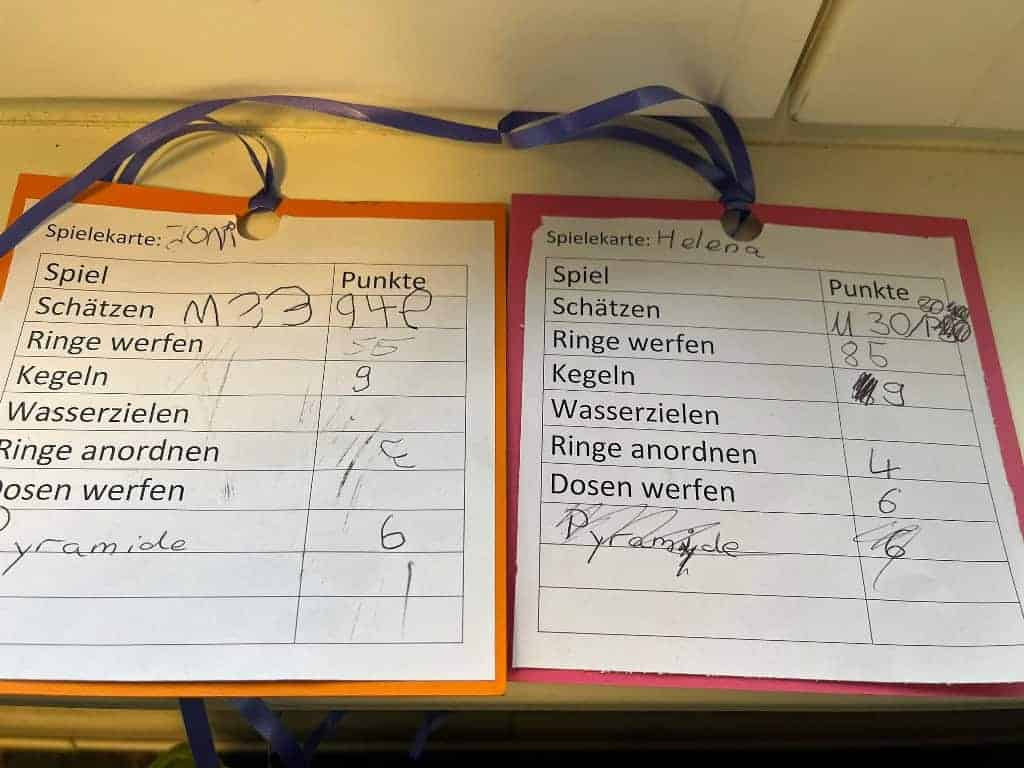 Spielekarte: JONi
Spiel Punkte
Schätzen M 33 94
Ringe werfen 55
Kegeln 9
Wasserzielen
Ringe anordnen
Dosen werfen
Pyramide 6
Spielekarte: Helena
Spiel Punkte
Schätzen M 30/
Ringe werfen 85
Kegeln 9
Wasserzielen
Ringe anordnen 4
Dosen werfen 6
Pyramide 6